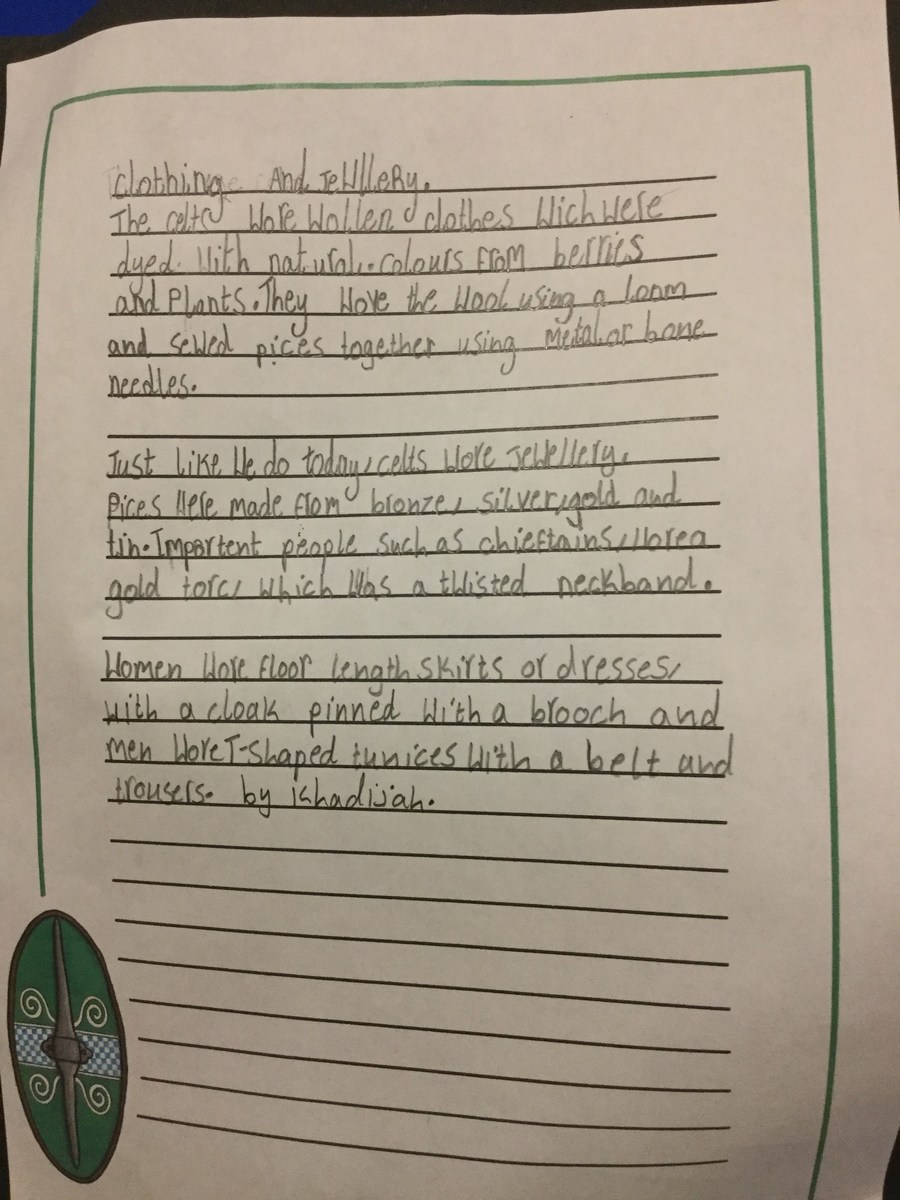 clothing And JeWllery.
The celts Wore Wollen clothes Wich Were
dyed. With natural.colours from berries
and Plants.They Wove the Wool using a loom
and seWed pices together using Metal or bone
needles.
Just like We do today, celts Wore JeWellery.
Pices Were made from bronze, silver, gold and
tin.Important people such as chieftains, Wore a
gold torc, which Was a tWisted neckband.
Women Wore floor length skirts or dresses,
with a cloak pinned With a brooch and
men Wore T-shaped tunices With a belt and
trousers. by khadijah.